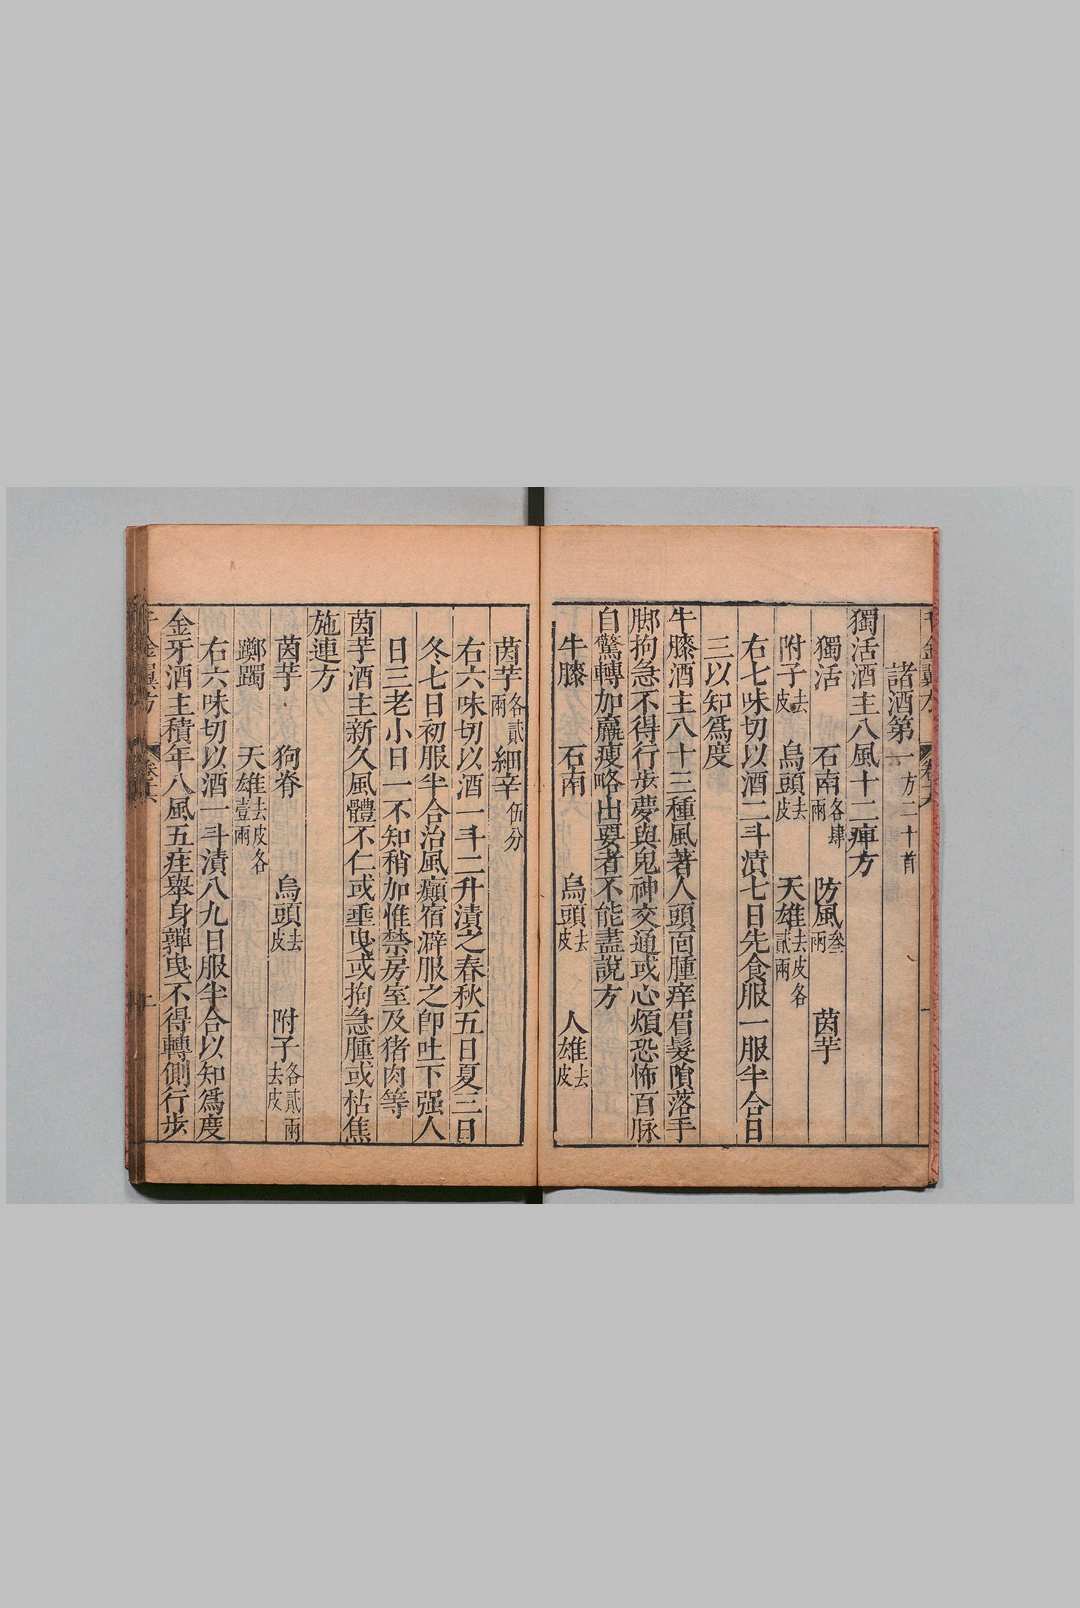 諸酒第一方二十首
獨活酒主八風十二痺方
獨活 石南各肆兩 防風叁兩 茵芋
附子去皮 烏頭去皮 天雄去皮各貳兩
右七味切以酒二斗漬七日先食服一服半合日
三以知爲度
牛膝酒主八十三種風著人頭面腫痒眉髮隕落手
脚拘急不得行步夢與鬼神交通或心煩恐怖百脉
自驚轉加羸瘦略出要者不能盡說方
牛膝 石南 烏頭去皮 人雄去皮
茵芋各貳兩 細辛伍分
右六味切以酒一斗二升漬之春秋五日夏三日
冬七日初服半合治風癲宿澼服之即吐下强人
日三老小日一不知稍加惟禁房室及猪肉等
茵芋酒主新久風體不仁或垂曳或拘急腫或枯焦
施連方
茵芋 狗脊 烏頭去皮 附子各貳兩去皮
躑躅 天雄去皮各壹兩
右六味切以酒一斗漬八九日服半合以知爲度
金牙酒主積年八風五疰舉身嚲曳不得轉側行步
千金翼方 卷十六